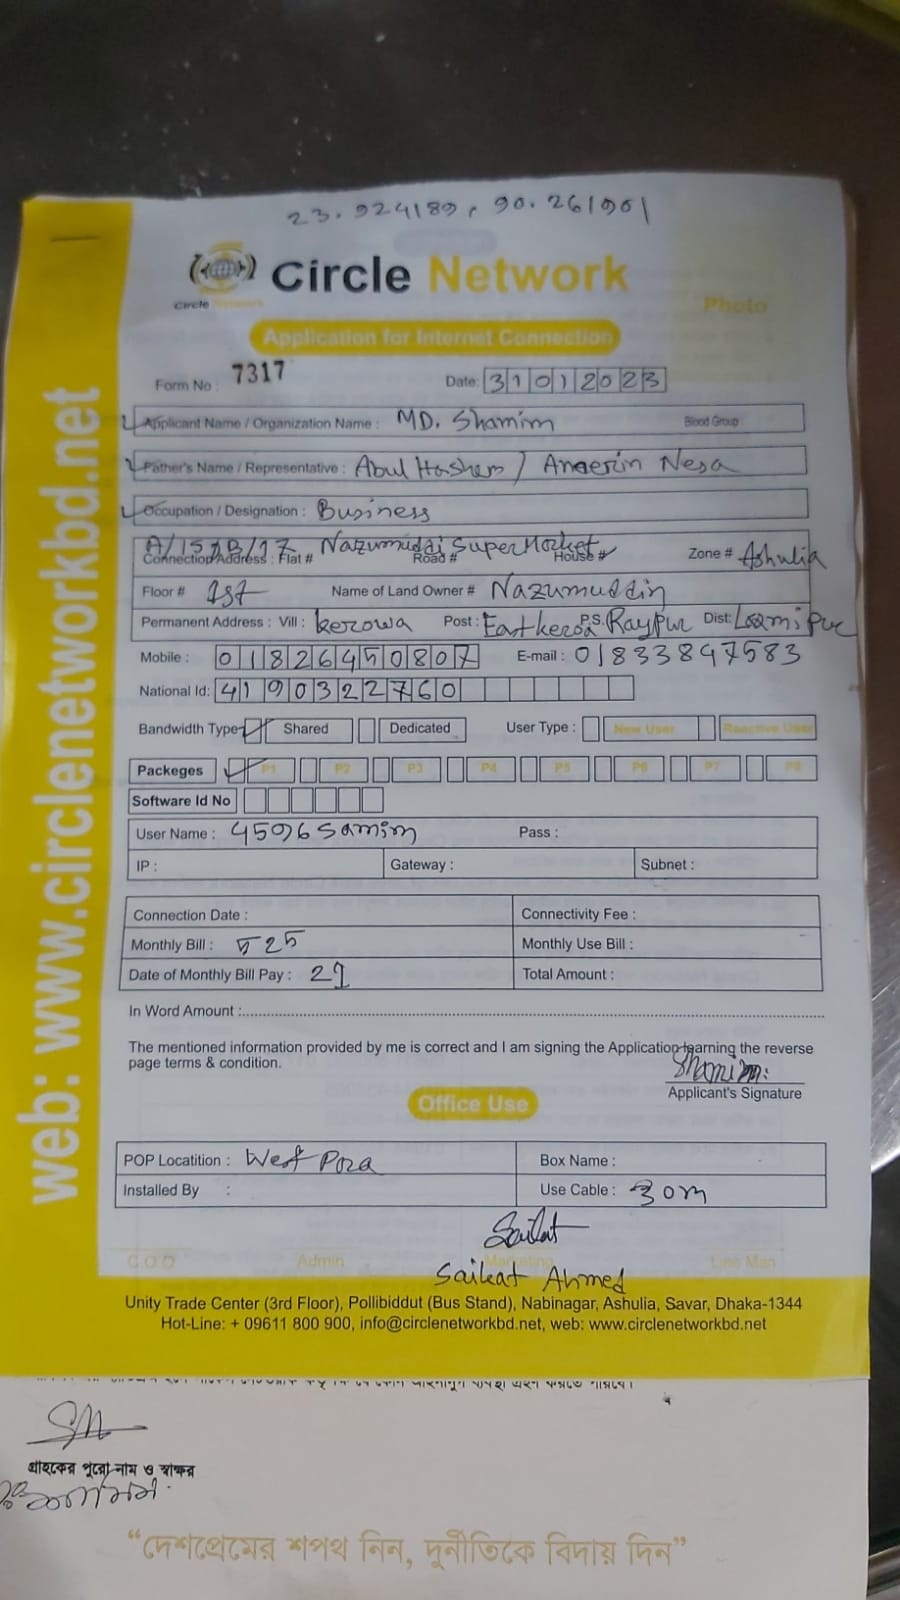 23.924189, 90.261901
Circle Network
Circle Network
Photo
Application for Internet Connection
Form No : 7317 Date: 31012023
Applicant Name / Organization Name : MD. Shamim Blood Group
Father's Name / Representative : Abul Hashem / Nesa
Occupation / Designation : Business
A/ Nazumuddi SuperMarket
Connection Address : Flat # Road # House # Zone # Ashulia
Floor # 1st Name of Land Owner # Nazumuddin
Permanent Address : Vill : kerowa Post : East keroa P.S. Raypur Dist: Laxmipur
Mobile : 01826450807 E-mail : 01833847583
National Id: 4190322760
Bandwidth Type Shared Dedicated User Type : New User Reactive User
Packeges P1 P2 P3 P4 P5 P6 P7 P8
Software Id No
User Name : 4596samim Pass :
IP : Gateway : Subnet :
Connection Date : Connectivity Fee :
Monthly Bill : 525 Monthly Use Bill :
Date of Monthly Bill Pay : 21 Total Amount :
In Word Amount :
The mentioned information provided by me is correct and I am signing the Application learning the reverse
page terms & condition.
Shamim
Applicant's Signature
Office Use
POP Locatition : West Para Box Name :
Installed By : Use Cable : 30m
Saikat
C.O.O Admin Marketing Line Man
Saikat Ahmed
Unity Trade Center (3rd Floor), Pollibiddut (Bus Stand), Nabinagar, Ashulia, Savar, Dhaka-1344
Hot-Line: + 09611 800 900, info@circlenetworkbd.net, web: www.circlenetworkbd.net
web: www.circlenetworkbd.net
গ্রাহকের পুরো নাম ও স্বাক্ষর
“দেশপ্রেমের শপথ নিন, দুর্নীতিকে বিদায় দিন”